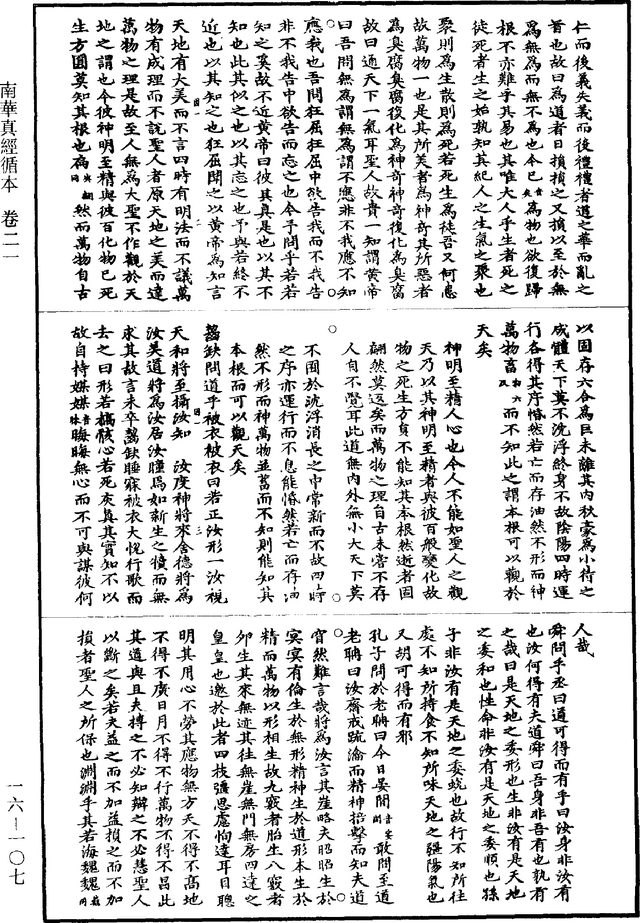 南華真經循本 卷二一
一六—一〇七
仁而後義失義而後禮禮者道之華而亂之
首也故曰為道者日損損之又損以至於無
為無為而無不為也今已為物也欲復歸
根不亦難乎其易也其唯大人乎生者死之
徒死者生之始孰知其紀人之生氣之聚也
聚則為生散則為死若死生為徒吾又何患
故萬物一也是其所美者為神奇其所惡者
為臭腐臭腐復化為神奇神奇復化為臭腐
故曰通天下一氣耳聖人故貴一知謂黃帝
曰吾問無為謂無為謂不應非不我應不知
應我也吾問狂屈狂屈中欲告我而不我告
非不我告中欲告而忘之也今予問乎若若
知之奚故不近黃帝曰彼其真是也以其不
知也此其似之也以其忘之也予與若終不
近也以其知之也狂屈聞之以黃帝為知言
天地有大美而不言四時有明法而不議萬
物有成理而不說聖人者原天地之美而達
萬物之理是故至人無為大聖不作觀於天
地之謂也今彼神明至精與彼百化物已死
生方圓莫知其根也扁音翩然而萬物自古
以固存六合為巨未離其內秋豪為小待之
成體天下莫不沈浮終身不故陰陽四時運
行各得其序惛然若亡而存油然不形而神
萬物畜而不知此之謂本根可以觀於
天矣
神明至精人心也今人不能如聖人之觀
天乃以其神明至精者與彼百般變化故
物之死生方負不能知其本根然逝者固
翩然莫返矣而萬物之理自古未嘗不存
人自不覺耳此道無內外無小大天下莫
不囿於沈浮消長之中常新而不故四時
之序亦運行而不息能惛然若亡而存油
然不形而神萬物並蓄而不知則能知其
本根而可以觀天矣
齧缺問道乎被衣被衣曰若正汝形一汝視
天和將至攝汝知一汝度神將來舍德將為
汝美道將為汝居汝瞳焉如新生之犢而無
求其故言未卒齧缺睡寐被衣大悅行歌而
去之曰形若槁骸心若死灰真其實知不以
故自持媒媒晦晦無心而不可與謀彼何
人哉
舜問乎丞曰道可得而有乎曰汝身非汝有
也汝何得有夫道舜曰吾身非吾有也孰有
之哉曰是天地之委形也生非汝有是天地
之委和也性命非汝有是天地之委順也孫
子非汝有是天地之委蛻也故行不知所往
處不知所持食不知所味天地之彊陽氣也
又胡可得而有邪
孔子問於老聃曰今日晏閒敢問至道
老聃曰汝齋戒疏瀹而精神掊擊而知夫道
窅然難言哉將為汝言其崖略夫昭昭生於
冥冥有倫生於無形精神生於道形本生於
精而萬物以形相生故九竅者胎生八竅者
卵生其來無迹其往無崖無門無房四達之
皇皇也邀於此者四枝彊思慮恂達耳目聰
明其用心不勞其應物無方天不得不高地
不得不廣日月不得不行萬物不得不昌此
其道與且夫摶之不必知辯之不必慧聖人
以斷之矣若夫益之而不加益損之而不加
損者聖人之所保也淵淵乎其若海魏魏